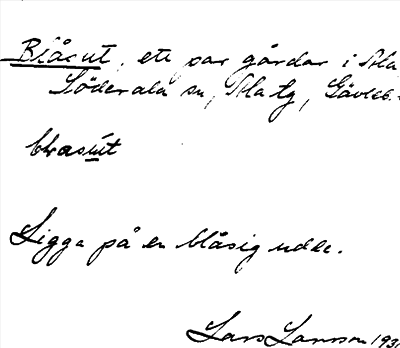 Blåsut, ett par gårdar i Ala
Söderala sn, Ala tg, Gävleb.
blåsút
Ligga på en blåsig udde.
Lars Larsson 193